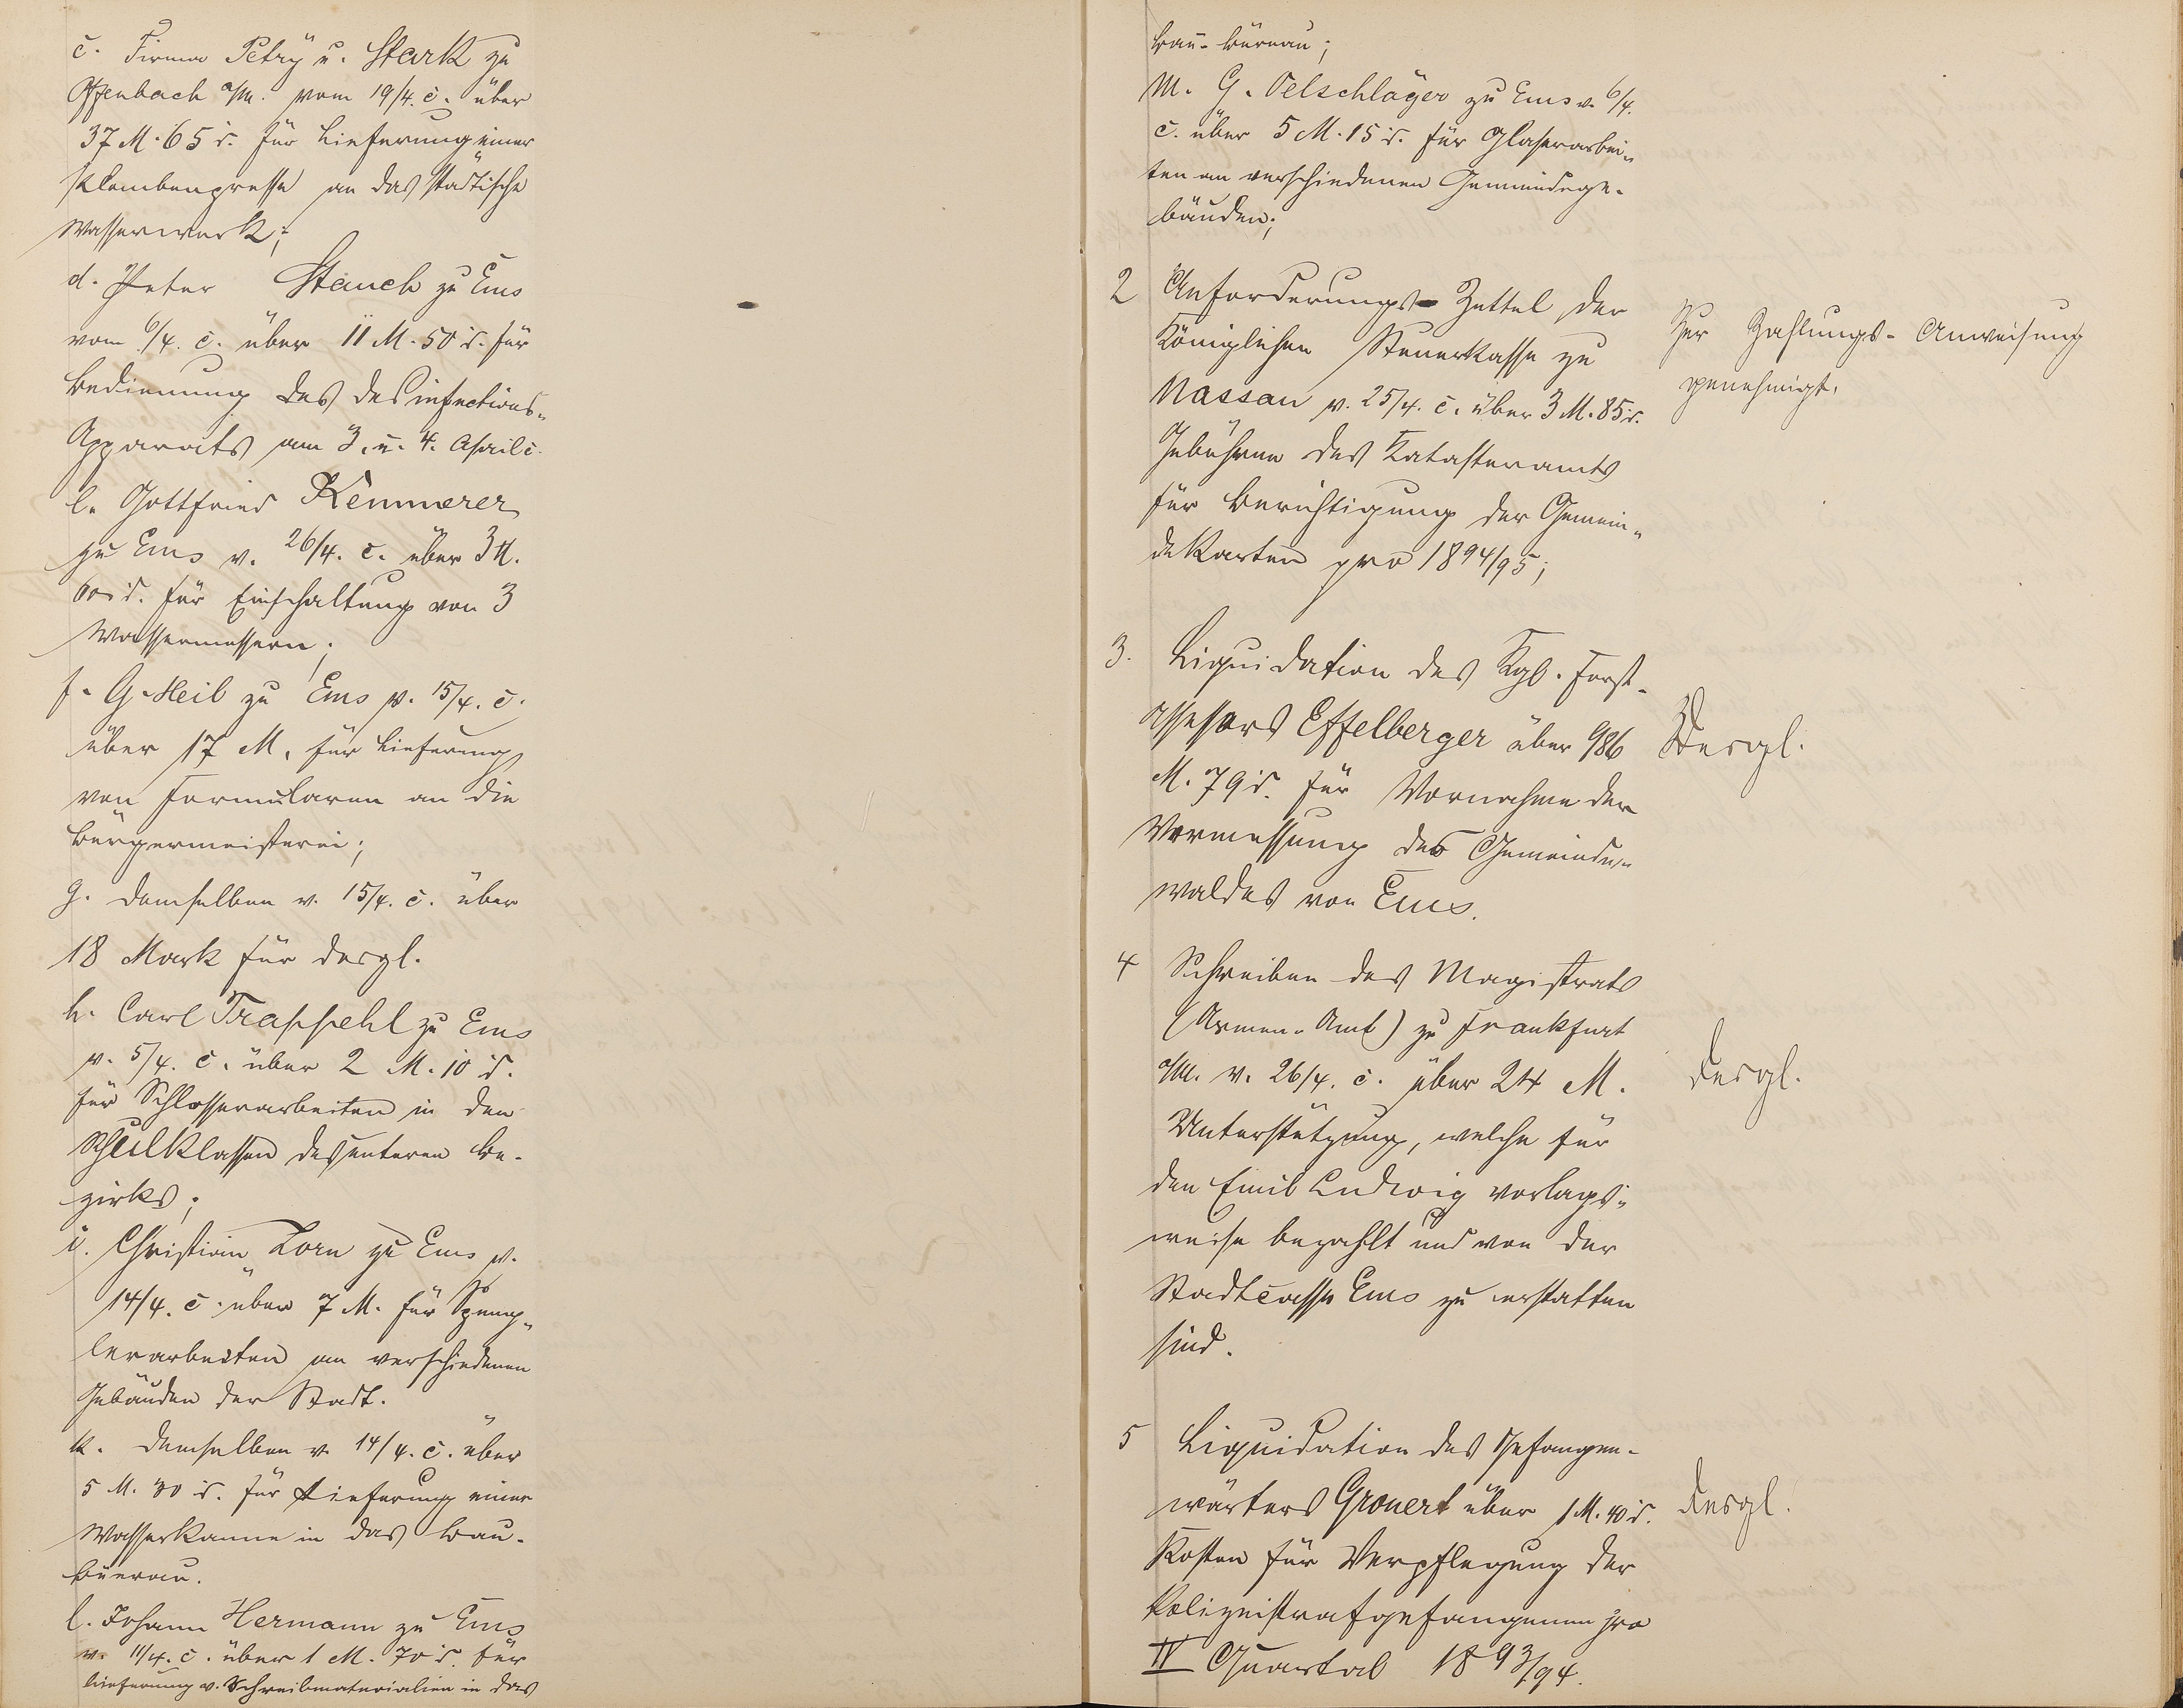 c. Firma Petry u. Stark zu
Offenbach a/M. vom 19/4. c. über
37 M. 65 d. für Lieferung einer
Plombenpresse an das städtische
Wasserwerk;
d. Peter Stauch zu Ems
vom 6/4. c. über 11 M. 50 d. für
Bedienung des Desinfections-
Apparats am 3. u. 4. April c.
e. Gottfried Kemmerer
zu Ems v. 26/4. c. über 3 M.
60 d. für Einschaltung von 3
Wassermessern;
f. G. Heil zu Ems v. 15/4. c.
über 17 M. für Lieferung
von Formularen an die
Bürgermeisterei;
g. demselben v. 15/4. c. über
18 Mark für desgl.
h. Carl Trappehl zu Ems
v. 5/4. c. über 2 M. 10 d.
für Schlosserarbeiten in den
Schulklassen des unteren Be-
zirks;
i. Christian Zorn zu Ems v.
14/4. c. über 7 M. für Speng-
lerarbeiten an verschiedenen
Gebäuden der Stadt.
k. demselben v. 14/4. c. über
5 M. 30 d. für Lieferung einer
Wasserkanne in das Bau-
büreau.
l. Johann Hermann zu Ems
v. 11/4. c. über 1 M. 70 d. für
Lieferung v. Schreibmaterialien in das
Bau-Büreau;
m. G. Oelschläger zu Ems v. 6/4.
c. über 5 M. 15 d. für Glaserarbei-
ten an verschiedenen Gemeindege-
bäuden;
2 Anforderungs-Zettel der
Königlichen Steuerkasse zu
Nassau v. 25/4. c. über 3 M. 85 d.
Gebühren des Katasteramts
für Berichtigung der Gemein-
dekarten pro 1894/95;
Zur Zahlungs-Anweisung
genehmigt.
3. Liquidation des Kgl. Forst-
assessors Effelberger über 986
M. 79 d. für Vornahme der
Vermessung des Gemeinde-
waldes von Ems.
Desgl.
4 Schreiben des Magistrats
(Armen-Amt) zu Frankfurt
a/M. v. 26/4. c. über 24 M.
Unterstützung, welche für
den Emil Ludwig vorlags-
weise bezahlt und von der
Stadtcasse Ems zu erstatten
sind.
desgl.
5 Liquidation des Gefangen-
wärters Gronert über 1 M. 40 d.
Kosten für Verpflegung der
Polizeistrafgefangenen pro
IV Quartal 1893/94.
desgl.